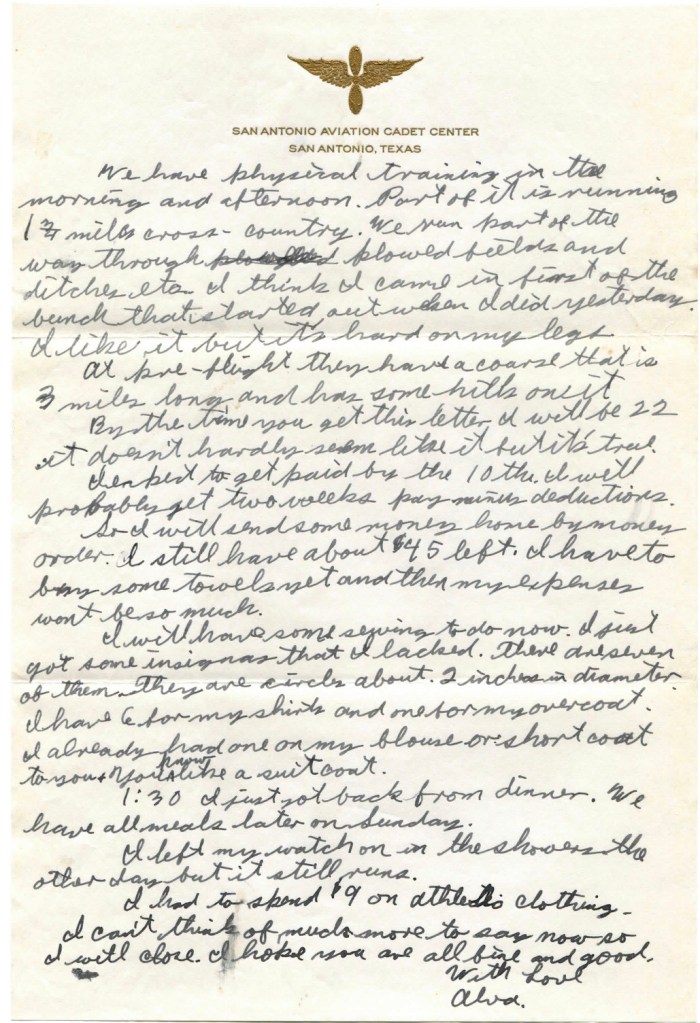 SAN ANTONIO AVIATION CADET CENTER
SAN ANTONIO, TEXAS
We have physical training in the
morning and afternoon. Part of it is running
1 3/4 miles cross-country. We run part of the
way through plowed fields and
ditches etc. I think I came in first of the
bunch that started out when I did yesterday.
I like it but it's hard on my legs
At pre-flight they have a coarse that is
3 miles long and has some hills on it
By the time you get this letter I will be 22
it doesn't hardly seem like it but it's true.
I expect to get paid by the 10th. I will
probably get two weeks pay minus deductions.
So I will send some money home by money
order. I still have about $45 left. I have to
buy some towels yet and then my expenses
wont be so much.
I will have some sewing to do now. I just
got some insignas that I lacked. There are seven
of them. They are circles about 2 inches in diameter.
I have 6 for my shirts and one for my overcoat.
I already had one on my blouse or short coat
to you. You know like a suit coat.
1:30 I just got back from dinner. We
have all meals later on Sunday.
I left my watch on in the showers the
other day but it still runs.
I had to spend $9 on athletic clothing.
I can't think of much more to say now so
I will close. I hope you are all fine and good.
With Love
Alva.